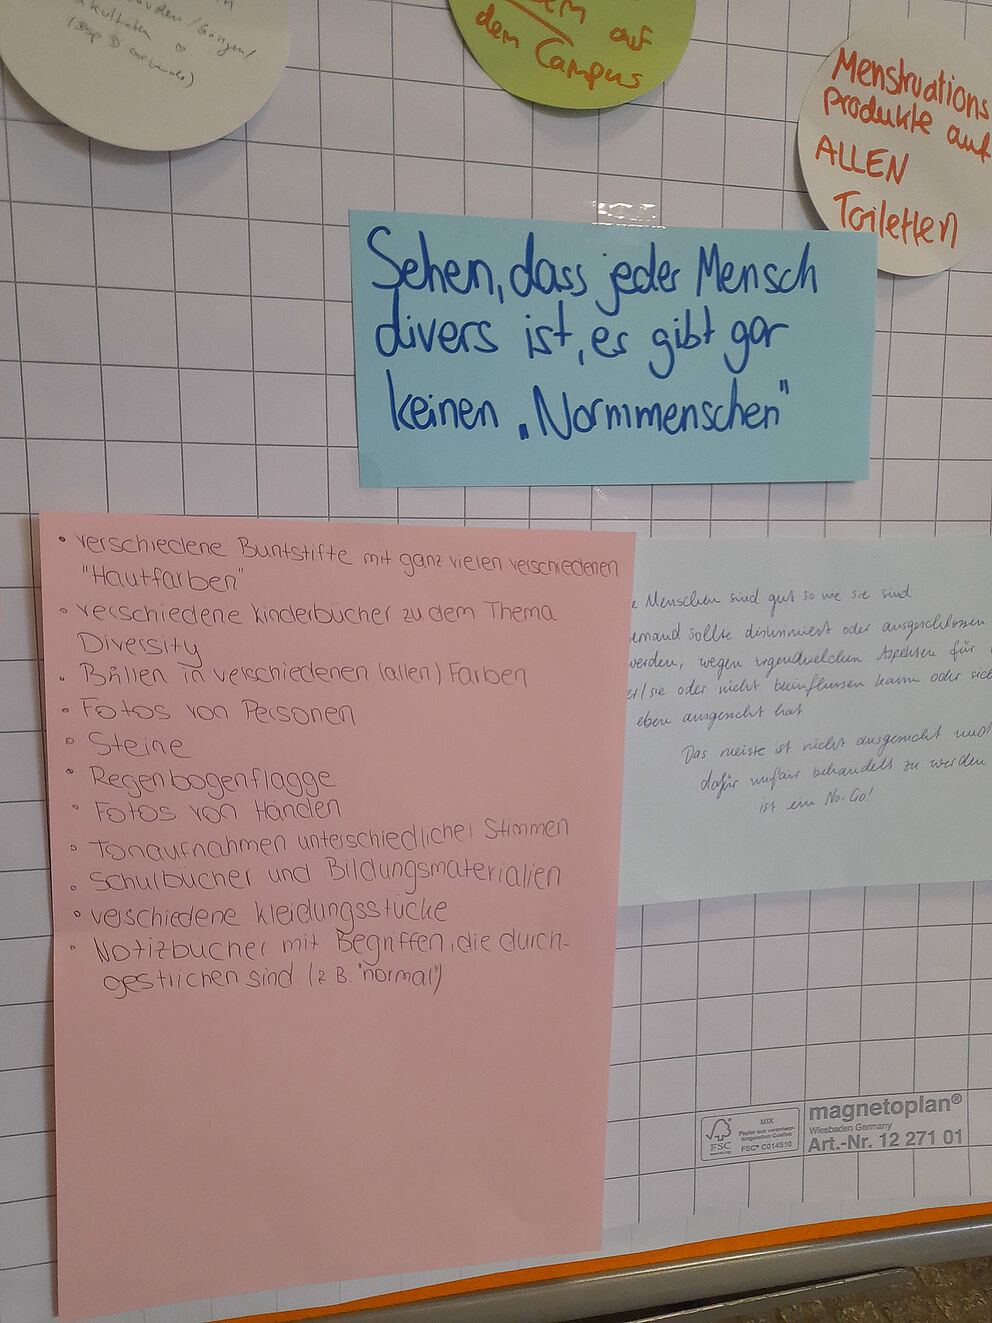 auf
dem Campus
Menstruations
produkte auf
ALLEN
Toiletten
Sehen, dass jeder Mensch
divers ist, es gibt gar
keinen „Normmenschen"
• verschiedene Buntstifte mit ganz vielen verschiedenen
"Hautfarben"
• verschiedene Kinderbücher zu dem Thema
Diversity
• Brillen in verschiedenen (allen) Farben
• Fotos von Personen
• Steine
• Regenbogenflagge
• Fotos von Händen
• Tonaufnahmen unterschiedlicher Stimmen
• Schulbücher und Bildungsmaterialien
• verschiedene Kleidungsstücke
• Notizbücher mit Begriffen, die durch-
gestrichen sind (z.B. "normal")
Menschen sind gut so wie sie sind.
sollte diskriminiert oder ausgeschlossen
werden, wegen irgendwelchen Aspekten für
er/sie oder nicht beeinflussen kann oder sich
eben ausgesucht hat.
Das meiste ist nicht ausgesucht und
dafür unfair behandelt zu werden
ist ein No-Go!
FSC
MIX
Papier aus verantwor-
tungsvollen Quellen
FSC® C014510
magnetoplan®
Wiesbaden Germany
Art.-Nr. 12 271 01